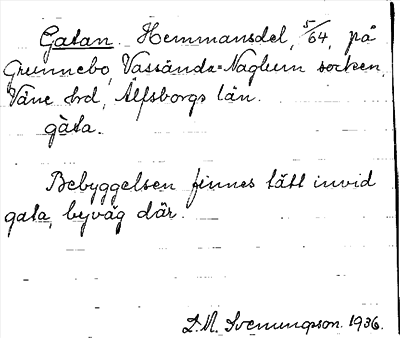 Gatan. Hemmansdel, 5/64, på
Grunnebo, Vassända=Naglum socken,
Väne hrd, Älfsborgs län.
gàta.
Bebyggelsen finnes tätt invid
gata, byväg där.
D.A. Svenungsson. 1936.